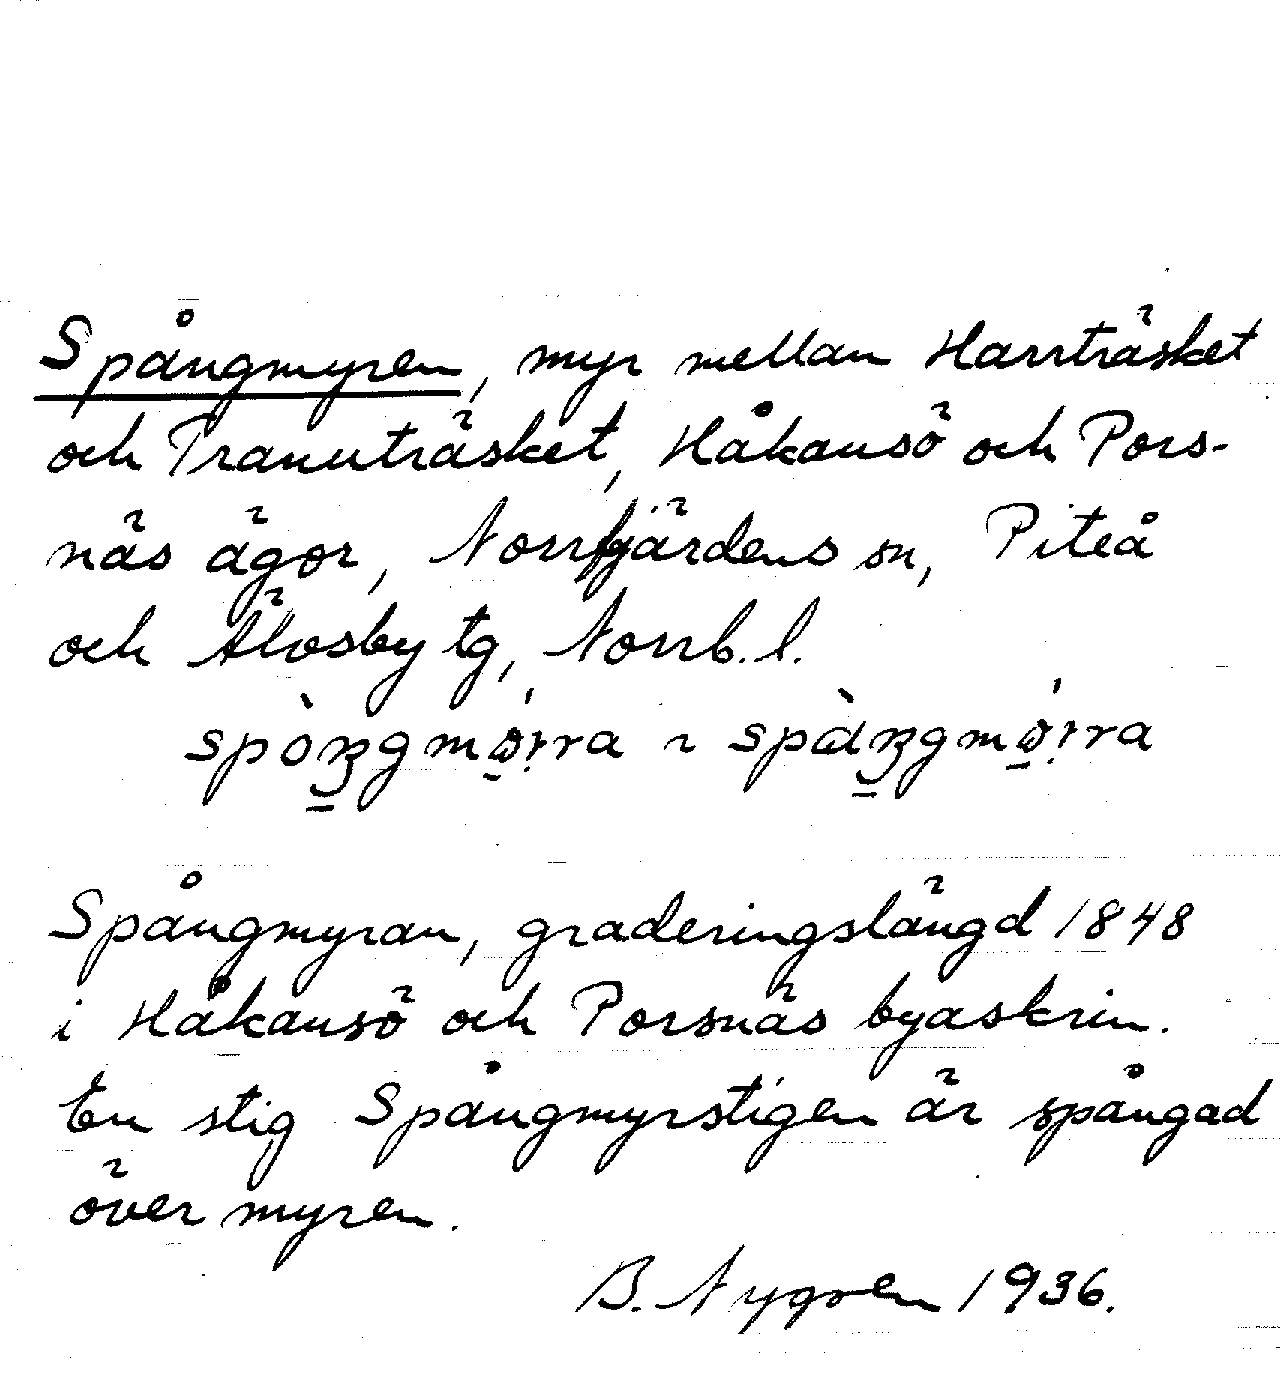 Spångmyren, myr mellan Harrträsket
och Tranuträsket, Håkansö och Pors-
näs ägor, Norrfjärdens sn, Piteå
och Älvsby tg, Norrb. l.
Spångmyran, graderingslängd 1848
i Håkansö och Porsnäs byaskrin.
En stig Spångmyrstigen är spångad
över myren.
B. Nygren 1936.